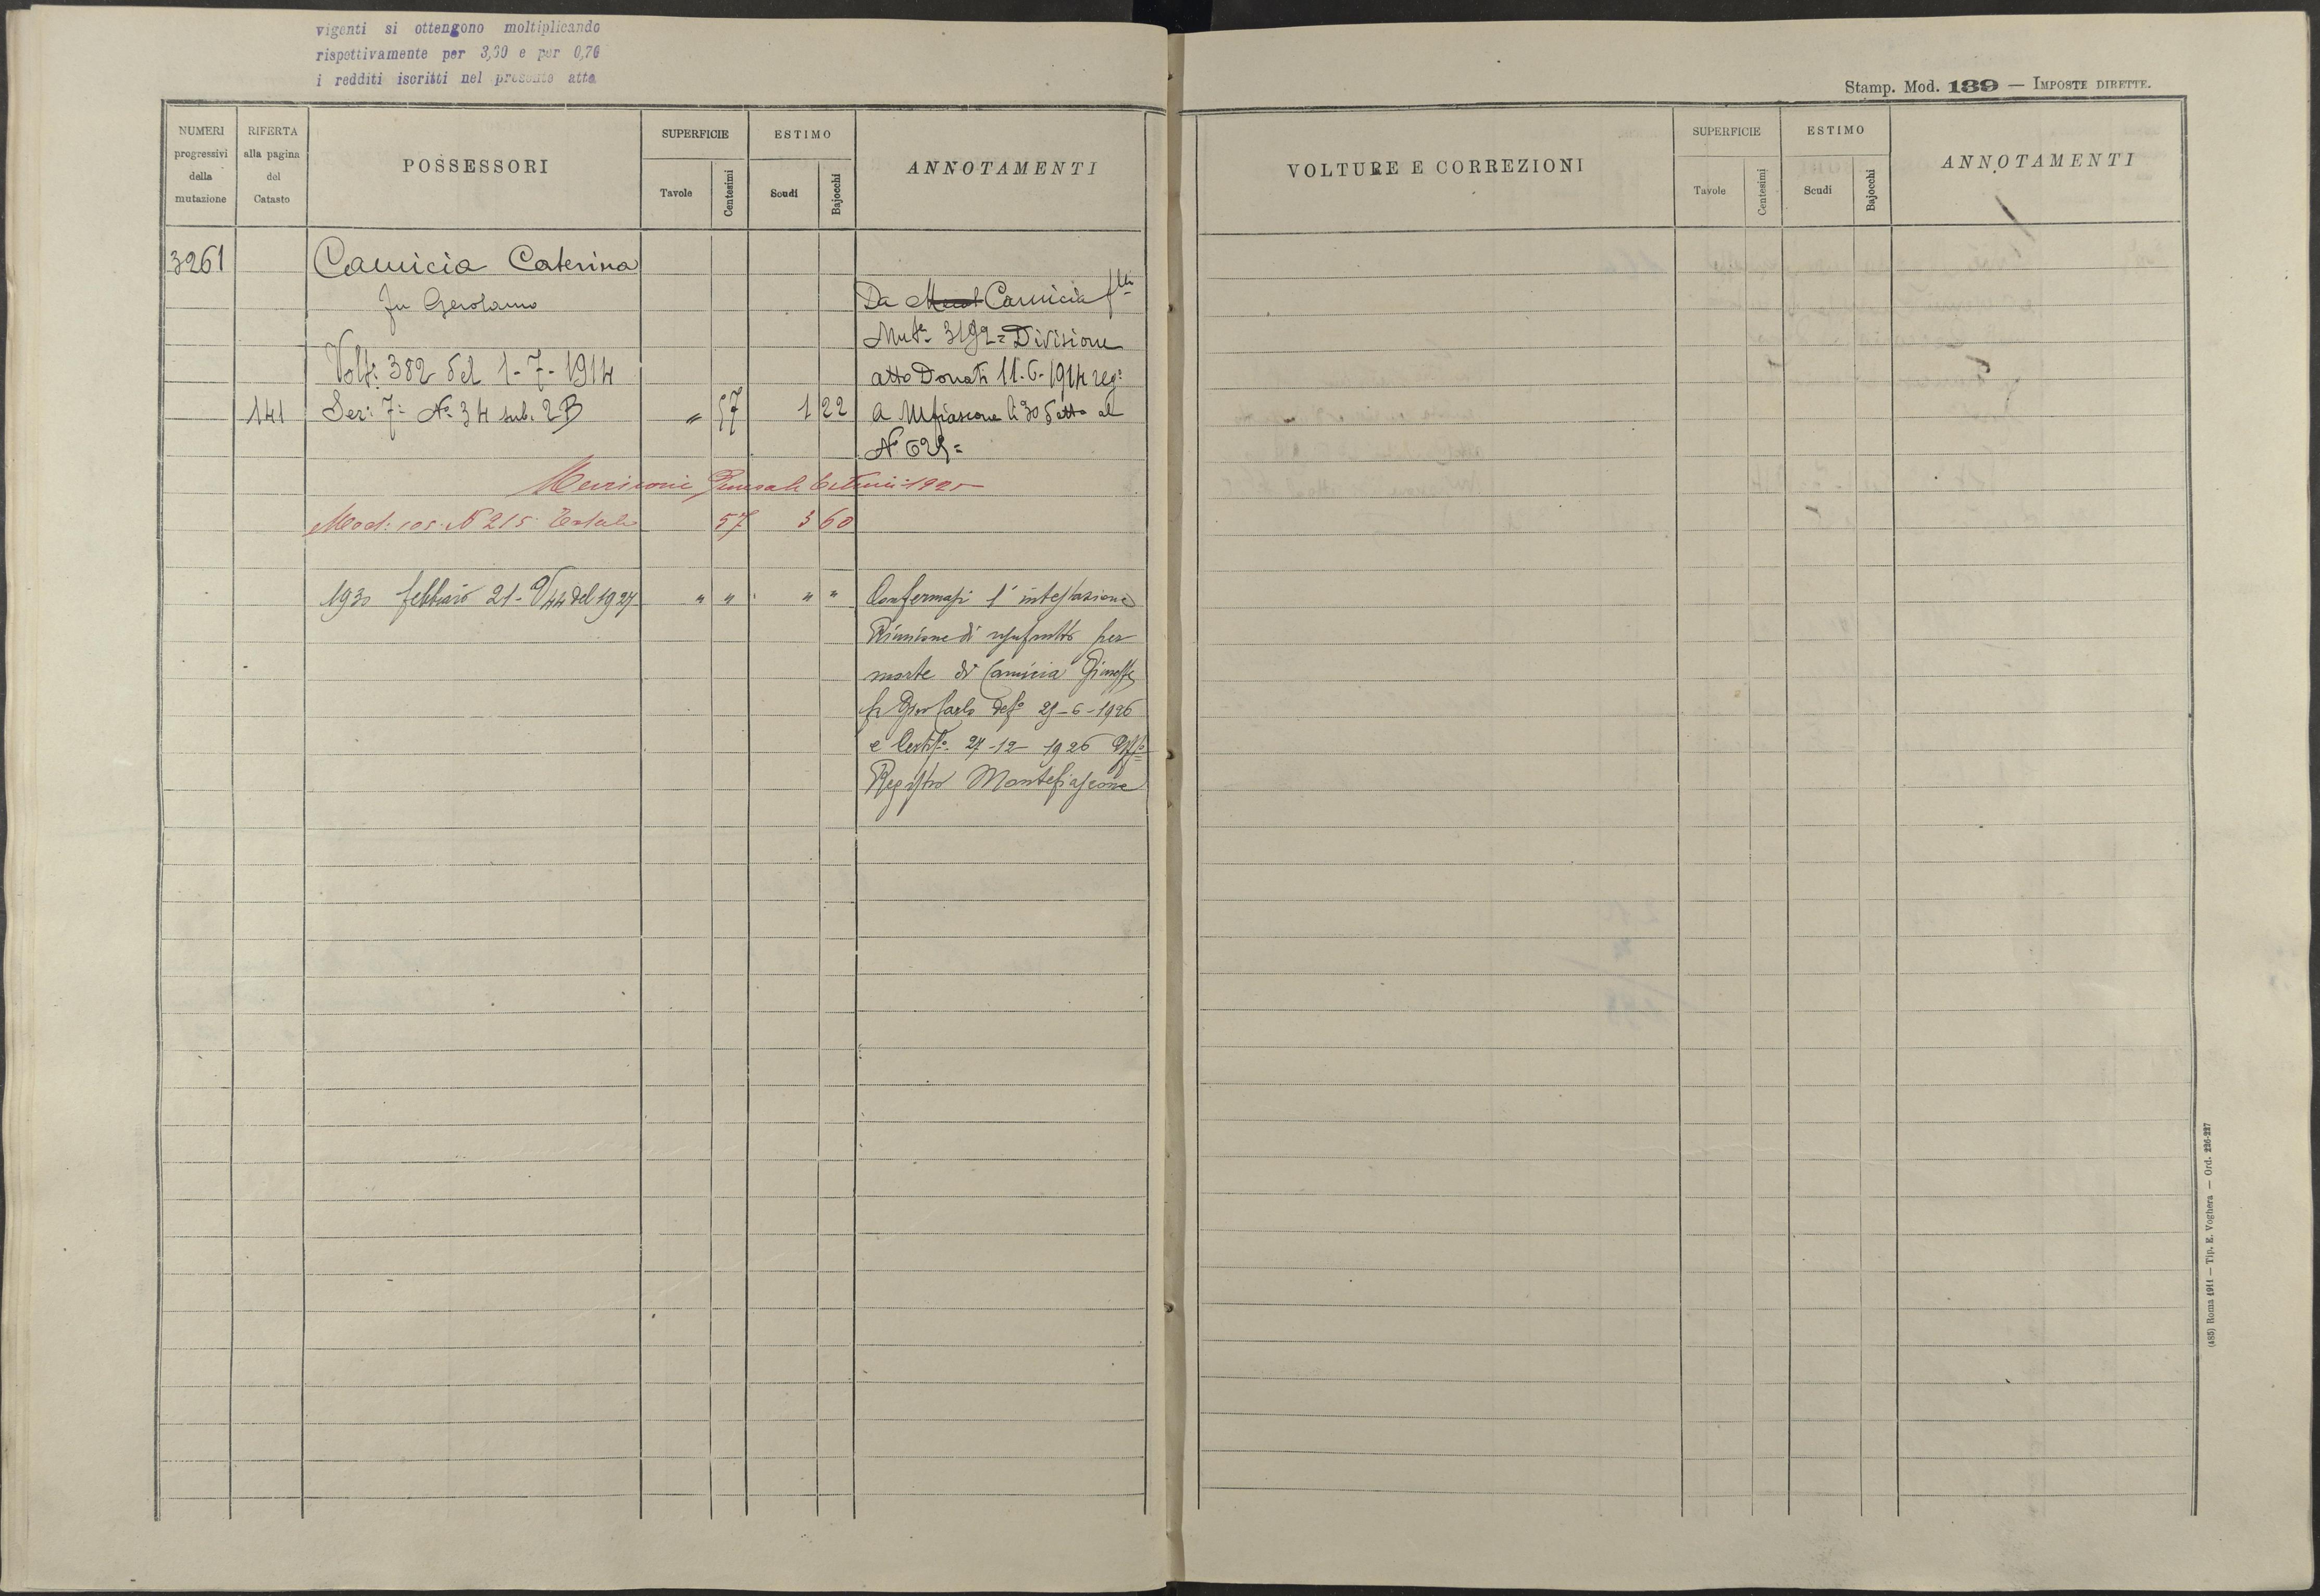 vigenti si ottengono moltiplicando
rispettivamente per 3,30 e per 0,76
i redditi iscritti nel presente atto
NUMERI progressivi della mutazione
RIFERTA alla pagina del Catasto
POSSESSORI
SUPERFICIE
Tavole
Centesimi
ESTIMO
Scudi
Bajocchi
ANNOTAMENTI
3261 Camicia Caterina
fu Gerolamo
Da Camicia flli
Mutª 3192 = Divisione
Volt: 382 del 1-7-1914
atto Donati 11-6-1914 reg:
141 Sez: 7ª Nº 34 sub. 2B " 57 1 22 a Mfiascone li 30 detto al
Nº 629 =
Revisione Generale Estimi 1925
Mod: 105 N 215 57 3 60
1930 febbraio 21 - V/44 del 1927 " " " " Confermasi l'intestazione
Riunione di usufrutto per
morte di Camicia Giuseppe
fu Gio Carlo
e Certifº 27-12-1926 Uffº
Registro Montefiascone
Stamp. Mod. 139 — IMPOSTE DIRETTE.
VOLTURE E CORREZIONI
SUPERFICIE
Tavole
Centesimi
ESTIMO
Scudi
Bajocchi
ANNOTAMENTI
(485) Roma 1911 — Tip. E. Voghera — Ord. 226-227